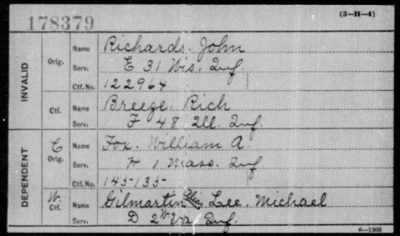 178379
(3-H-4)
INVALID
Orig. Name Richards, John
Serv. E 31 Wis. Inf.
Ctf. No. 122964
Ctf. Name Breeze, Rich
Serv. F 48 Ill. Inf.
DEPENDENT
C Orig. Name Fox, William A.
Serv. 1 Mass. Inf.
Ctf. No. 145-135-
W. Ctf. Name Gilmartin Lee, Michael
Serv. D 2" Va Inf.
6-1303